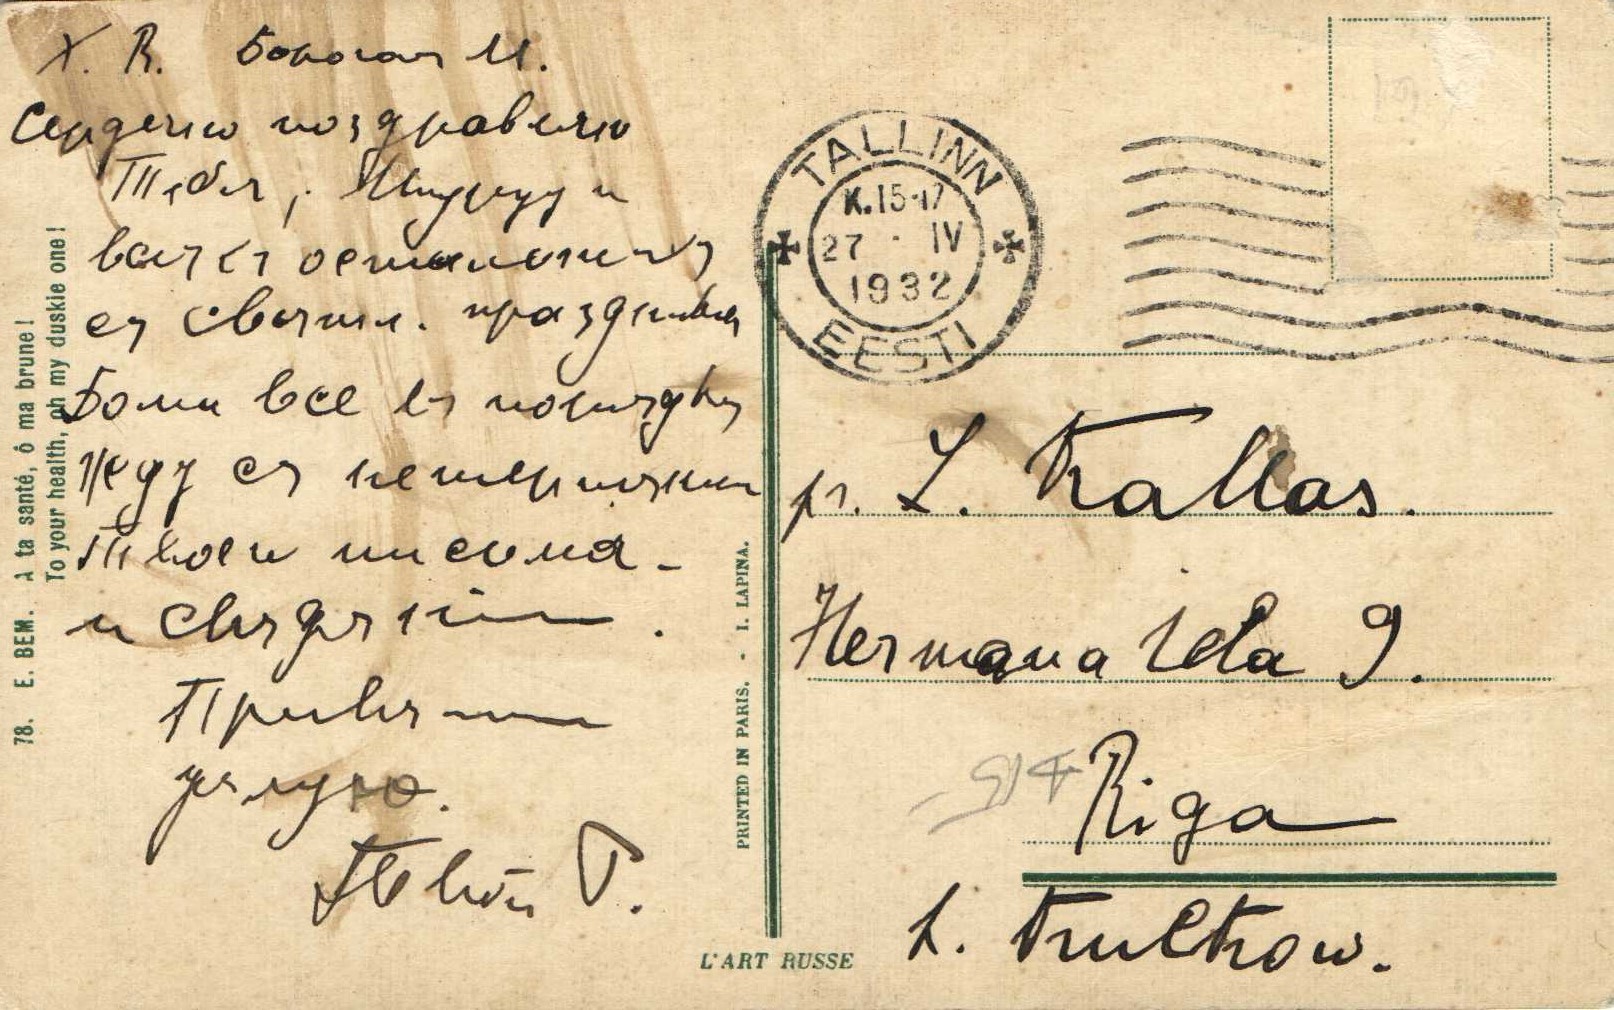 Х. В.
Сердечно поздравляю
Тебя, и
всѣхъ остальныхъ
съ свѣтл. праздником
Дома все въ порядкѣ
Жду съ нетерпѣніем
Твоего письма -
и свѣдѣній.
Привѣт
цѣлую.
Твой Г.
78. E. BEM. A ta santé, ô ma brune!
To your health, oh my duskie one!
PRINTED IN PARIS. - I. LAPINA.
L'ART RUSSE
TALLINN
K.15-17
27 · IV
1932
EESTI
pr. L. Kallas.
Hermana iela 9.
Riga
L.